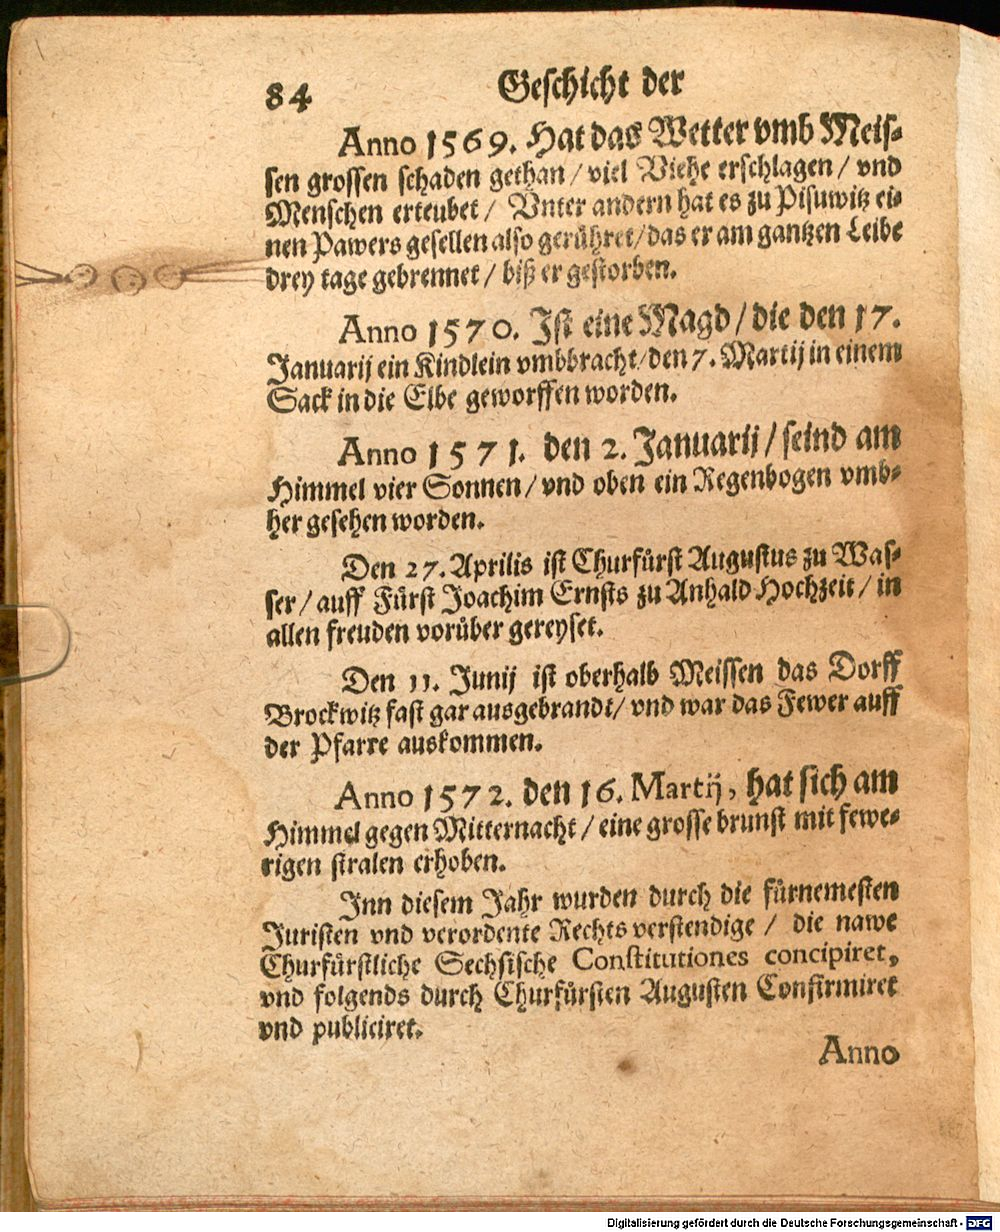 84 Geschicht der
Anno 1569. Hat das Wetter vmb Meis-
sen grossen schaden gethan / viel Viehe erschlagen / vnd
Menschen erteubet / Vnter andern hat es zu Pisuwitz ei-
nen Pawers gesellen also gerühret / das er am gantzen Leibe
drey tage gebrennet / biß er gestorben.
Anno 1570. Ist eine Magd / die den 17.
Januarij ein Kindlein vmbbracht / den 7. Martij in einem
Sack in die Elbe geworffen worden.
Anno 1571. den 2. Januarij / seind am
Himmel vier Sonnen / vnd oben ein Regenbogen vmb-
her gesehen worden.
Den 27. Aprilis ist Churfürst Augustus zu Was-
ser / auff Fürst Joachim Ernsts zu Anhald Hochzeit / in
allen freuden vorüber gereyset.
Den 11. Junij ist oberhalb Meissen das Dorff
Brockwitz fast gar ausgebrandt / vnd war das Fewer auff
der Pfarre auskommen.
Anno 1572. den 16. Martij, hat sich am
Himmel gegen Mitternacht / eine grosse brunst mit fewe-
rigen stralen erhoben.
Inn diesem Jahr wurden durch die fürnemesten
Juristen vnd verordente Rechts verstendige / die nawe
Churfürstliche Sechsische Constitutiones concipiret,
vnd folgends durch Churfürsten Augusten Confirmiret
vnd publiciret.
Anno
Digitalisierung gefördert durch die Deutsche Forschungsgemeinschaft - DFG